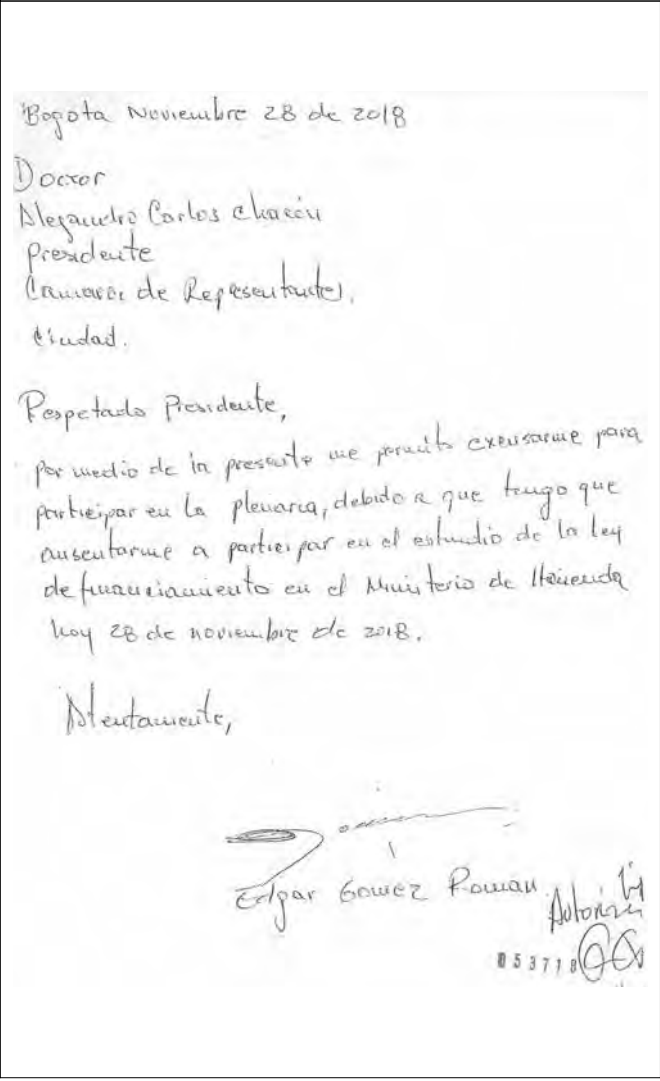 Bogota Noviembre 28 de 2018
Doctor
Alejandro Carlos Chacón
Presidente
Camara de Representantes.
Ciudad.
Respetado Presidente,
por medio de la presente me permito excusarme para
participar en la plenaria, debido a que tengo que
ausentarme a participar en el estudio de la ley
de financiamiento en el Ministerio de Hacienda
hoy 28 de noviembre de 2018.
Atentamente,
Edgar Gomez Roman
053718